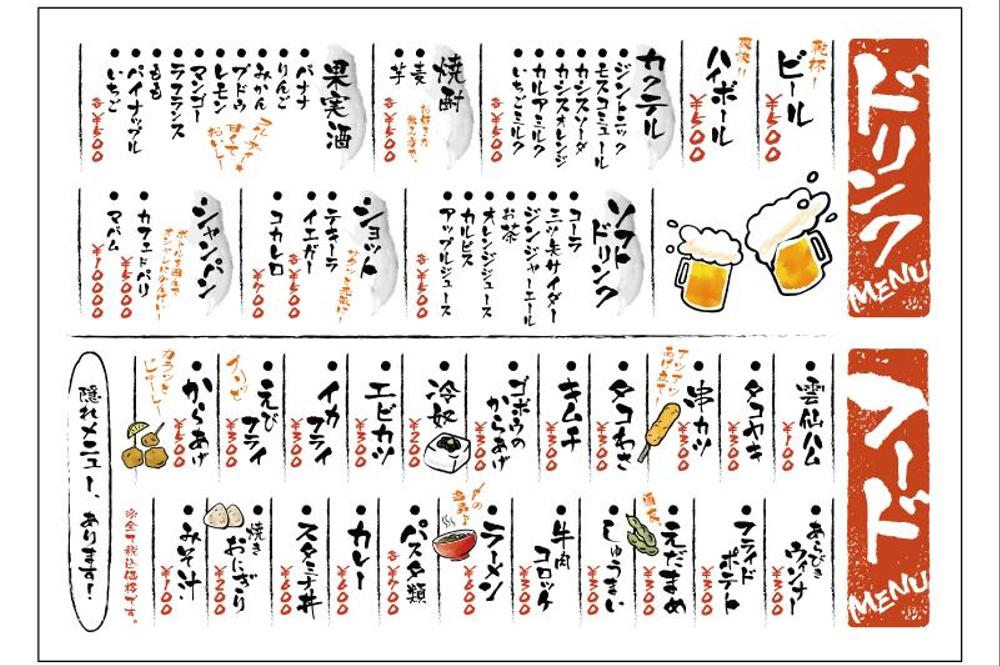 ドリンク
MENU
乾杯!
ビール
¥500
爽快!!
ハイボール
¥500
カクテル
ジントニック
モスコミュール
カシスソーダ
カシスオレンジ
カルアミルク
いちごミルク
各¥500
焼酎
麦
芋
各¥500
果実酒
バナナ
りんご
みかん
ブドウ
レモン
マンゴー
ラフランス
もも
パイナップル
いちご
甘くて
おいしー
各¥500
ソフト
ドリンク
コーラ
三ツ矢サイダー
ジンジャーエール
お茶
オレンジジュース
カルピス
アップルジュース
ショット
テキーラ
イエガー
コカレロ
¥700
シャンパン
カフェドパリ
マバム
¥10000
フード
MENU
雲仙ハム
¥100
タコヤキ
¥300
アツアツ
あげたて!
串カツ
¥300
タコわさ
¥300
キムチ
¥300
ゴボウの
からあげ
¥300
冷奴
¥200
エビカツ
¥300
イカ
フライ
¥300
えび
フライ
¥300
からあげ
¥500
あらびき
ウィンナー
¥300
フライド
ポテト
¥300
えだまめ
¥300
しゅうまい
¥300
牛肉
コロッケ
¥300
〆の
逸品♪
ラーメン
¥500
パスタ類
各¥700
カレー
¥600
スタミナ丼
¥600
焼き
おにぎり
¥200
みそ汁
¥100
※全て税込価格です。
隠れメニュー、あります!